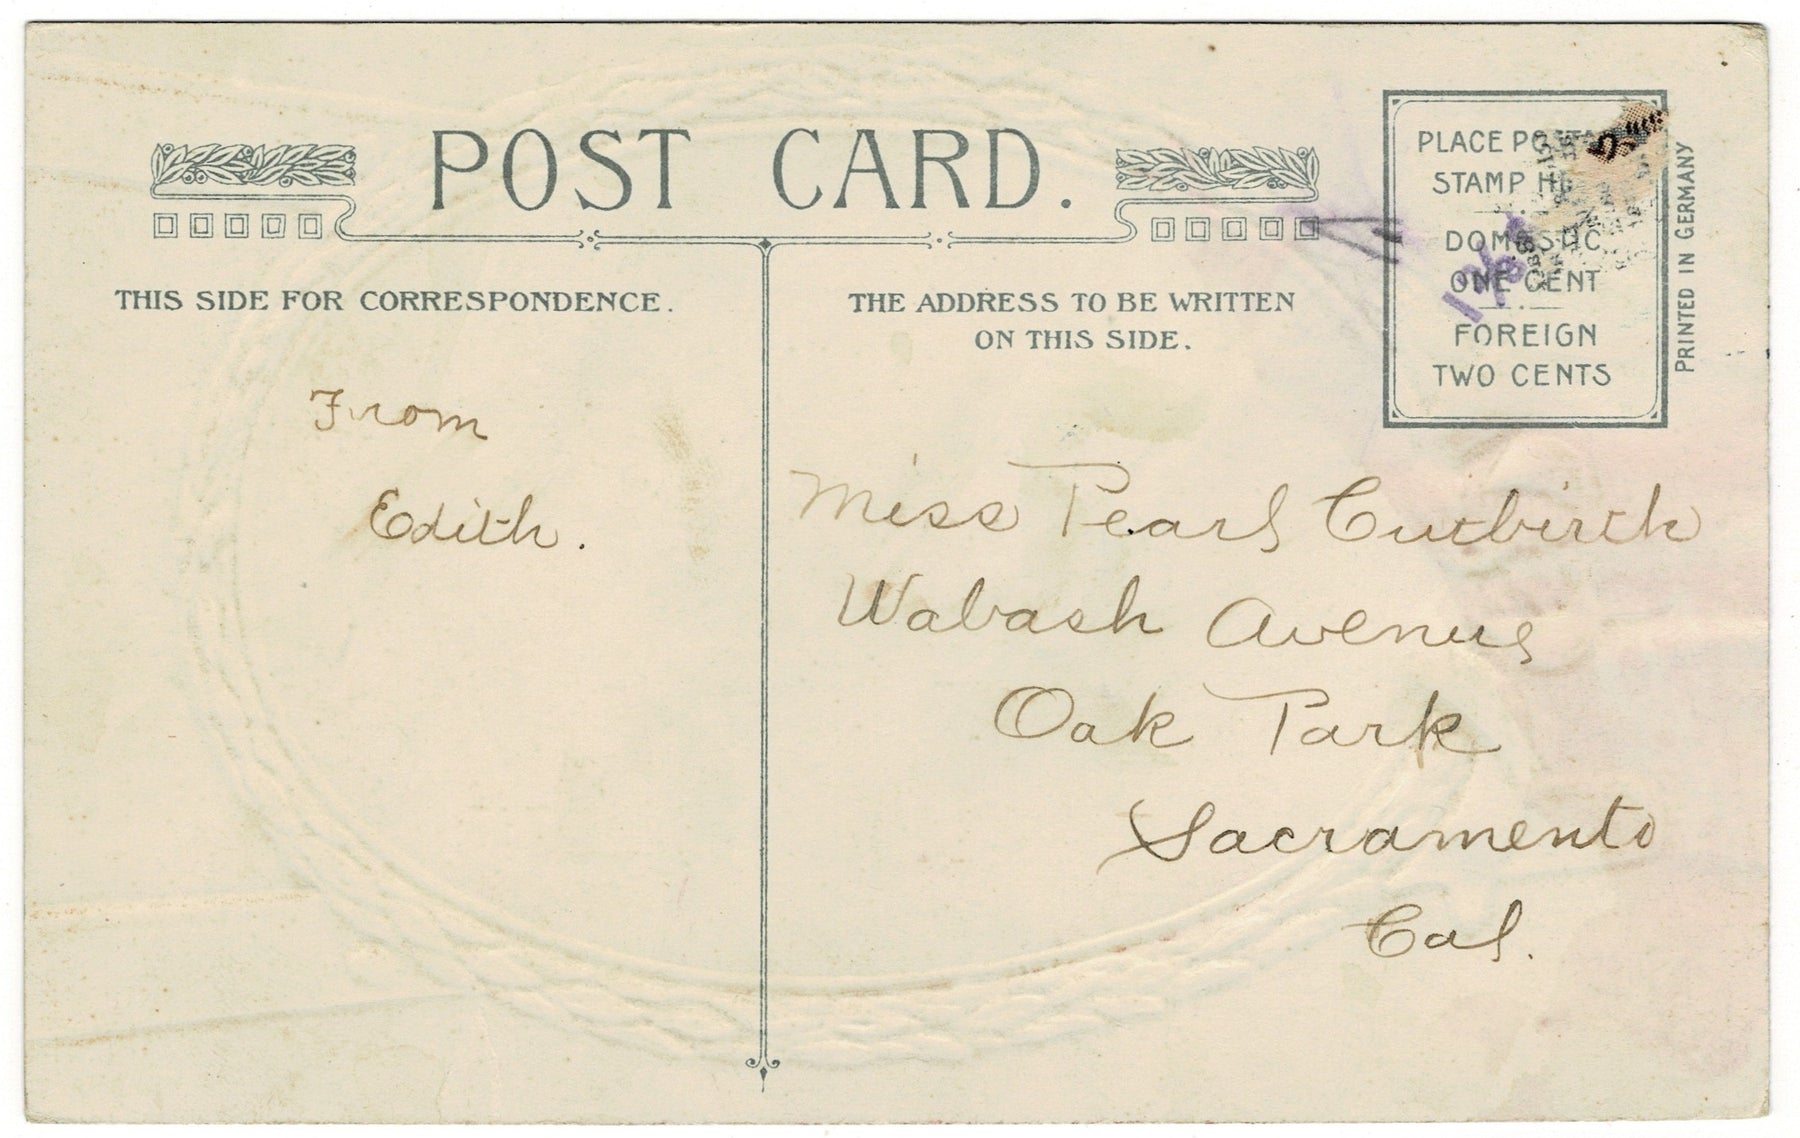 POST CARD.
THIS SIDE FOR CORRESPONDENCE.
From
Edith.
THE ADDRESS TO BE WRITTEN
ON THIS SIDE.
PLACE
STAMP
DOMESTIC
ONE CENT
FOREIGN
TWO CENTS
PRINTED IN GERMANY
Miss Pearl Cutbirth
Wabash Avenue
Oak Park
Sacramento
Cal.